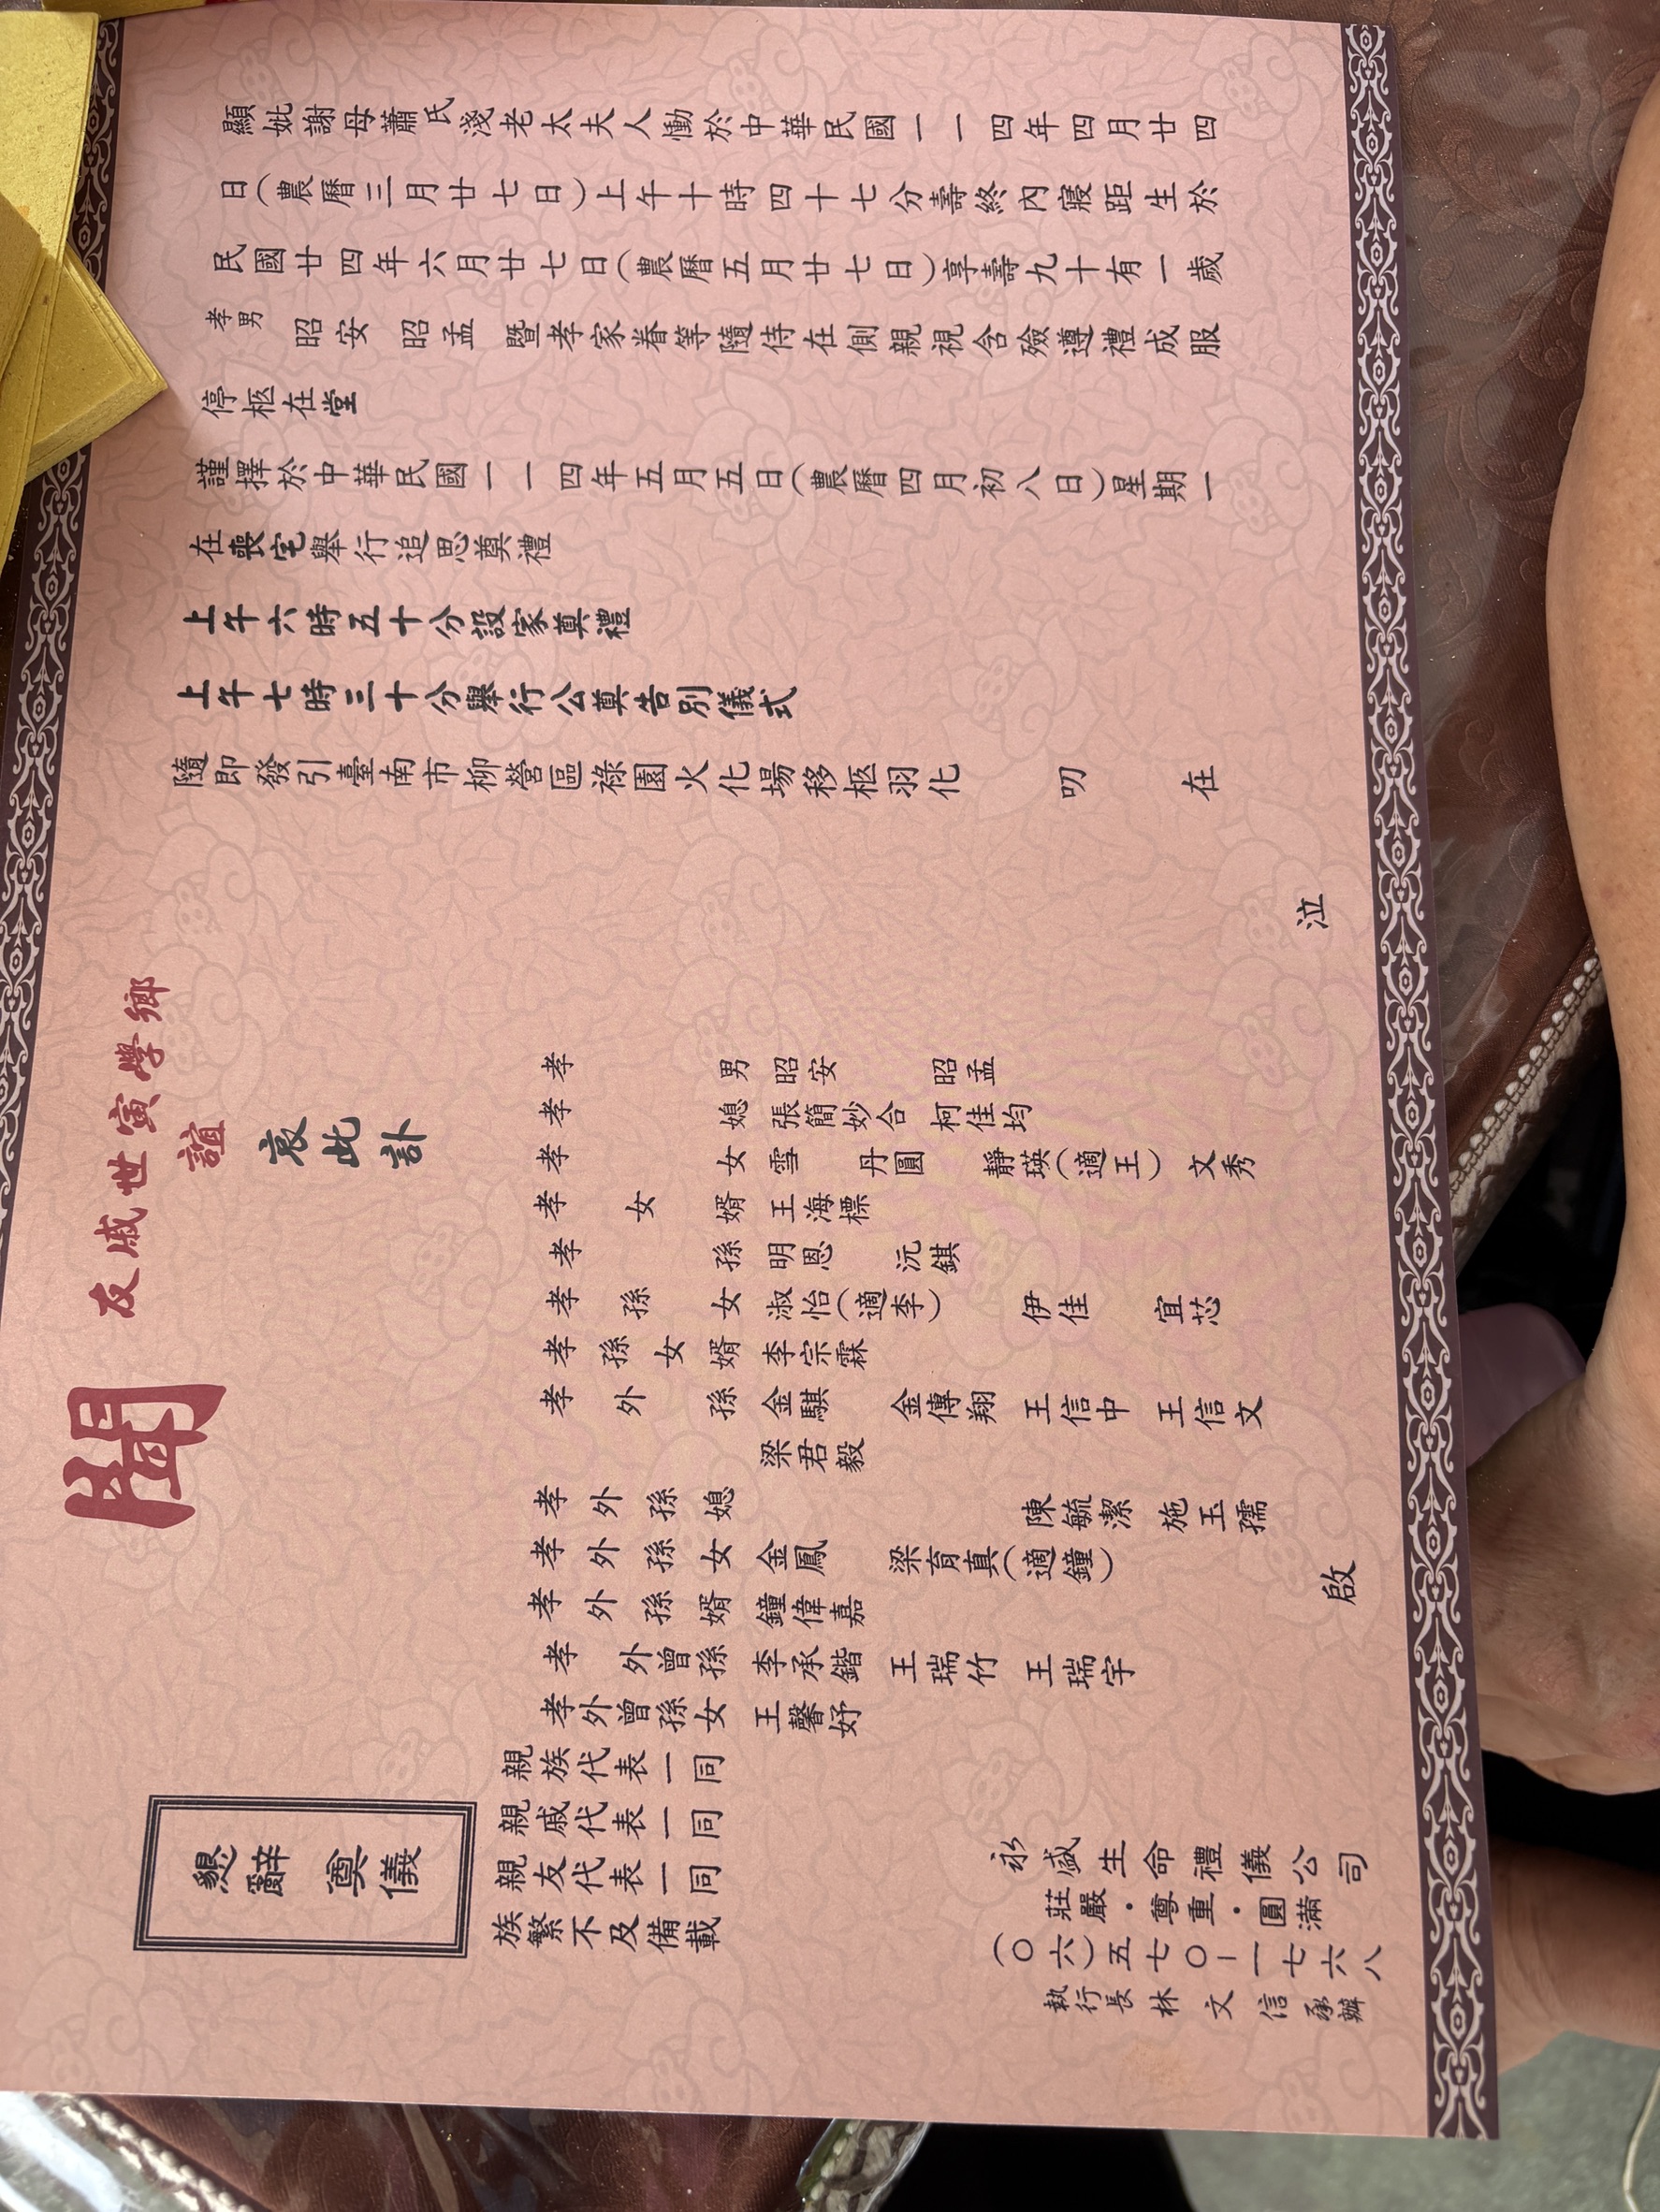 顯妣謝母蕭氏淺老太夫人慟於中華民國一一四年四月廿四
日(農曆三月廿七日)上午十時四十七分壽終內寢距生於
民國廿四年六月廿七日(農曆五月廿七日)享壽九十有一歲
孝男 昭安 昭孟 暨孝家眷等隨侍在側親視含殮遵禮成服
停柩在堂
謹擇於中華民國一一四年五月五日(農曆四月初八日)星期一
在喪宅舉行追思奠禮
上午六時五十分設家奠禮
上午七時三十分舉行公奠告別儀式
隨即發引臺南市柳營區祿園火化場移柩羽化 叨 在
友戚世寅學鄉
誼
哀此訃
聞
孝男 昭安 昭孟
孝媳 張簡妙合 柯佳均
孝女 雪 丹圓 靜瑛(適王) 文秀
孝女婿 王海標
孝孫 明恩 沅錤
孝孫女 淑怡(適李) 伊佳 宜芯
孝孫女婿 李宗霖
孝外孫 金騏 金傳翔 王信中 王信文
梁君毅
孝外孫媳 陳毓潔 施玉孺
孝外孫女 金鳳 梁育真(適鐘)
孝外孫婿 鐘偉嘉
孝外曾孫 李承鍇 王瑞竹 王瑞宇
孝外曾孫女 王馨妤
泣
啟
親族代表一同
親戚代表一同
親友代表一同
族繁不及備載
懇辭
奠儀
永盛生命禮儀公司
莊嚴·尊重·圓滿
(〇六)五七〇-一七六八
執行長林文信承辦